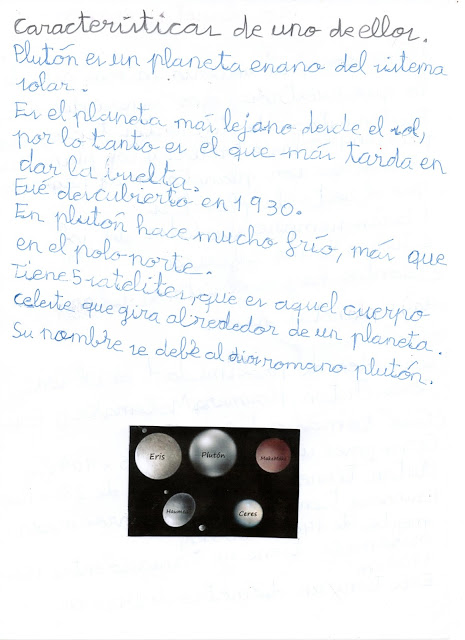 Características de uno de ellos.
Plutón es un planeta enano del sistema
solar.
Es el planeta más lejano desde el sol,
por lo tanto es el que más tarda en
dar la vuelta.
Fué descubierto en 1930.
En plutón hace mucho frío, más que
en el polo norte.
Tiene 5 satelites, que es aquel cuerpo
celeste que gira alrrededor de un planeta.
Su nombre se debe al dios romano plutón.
Eris Plutón MakeMake
Haumea Ceres